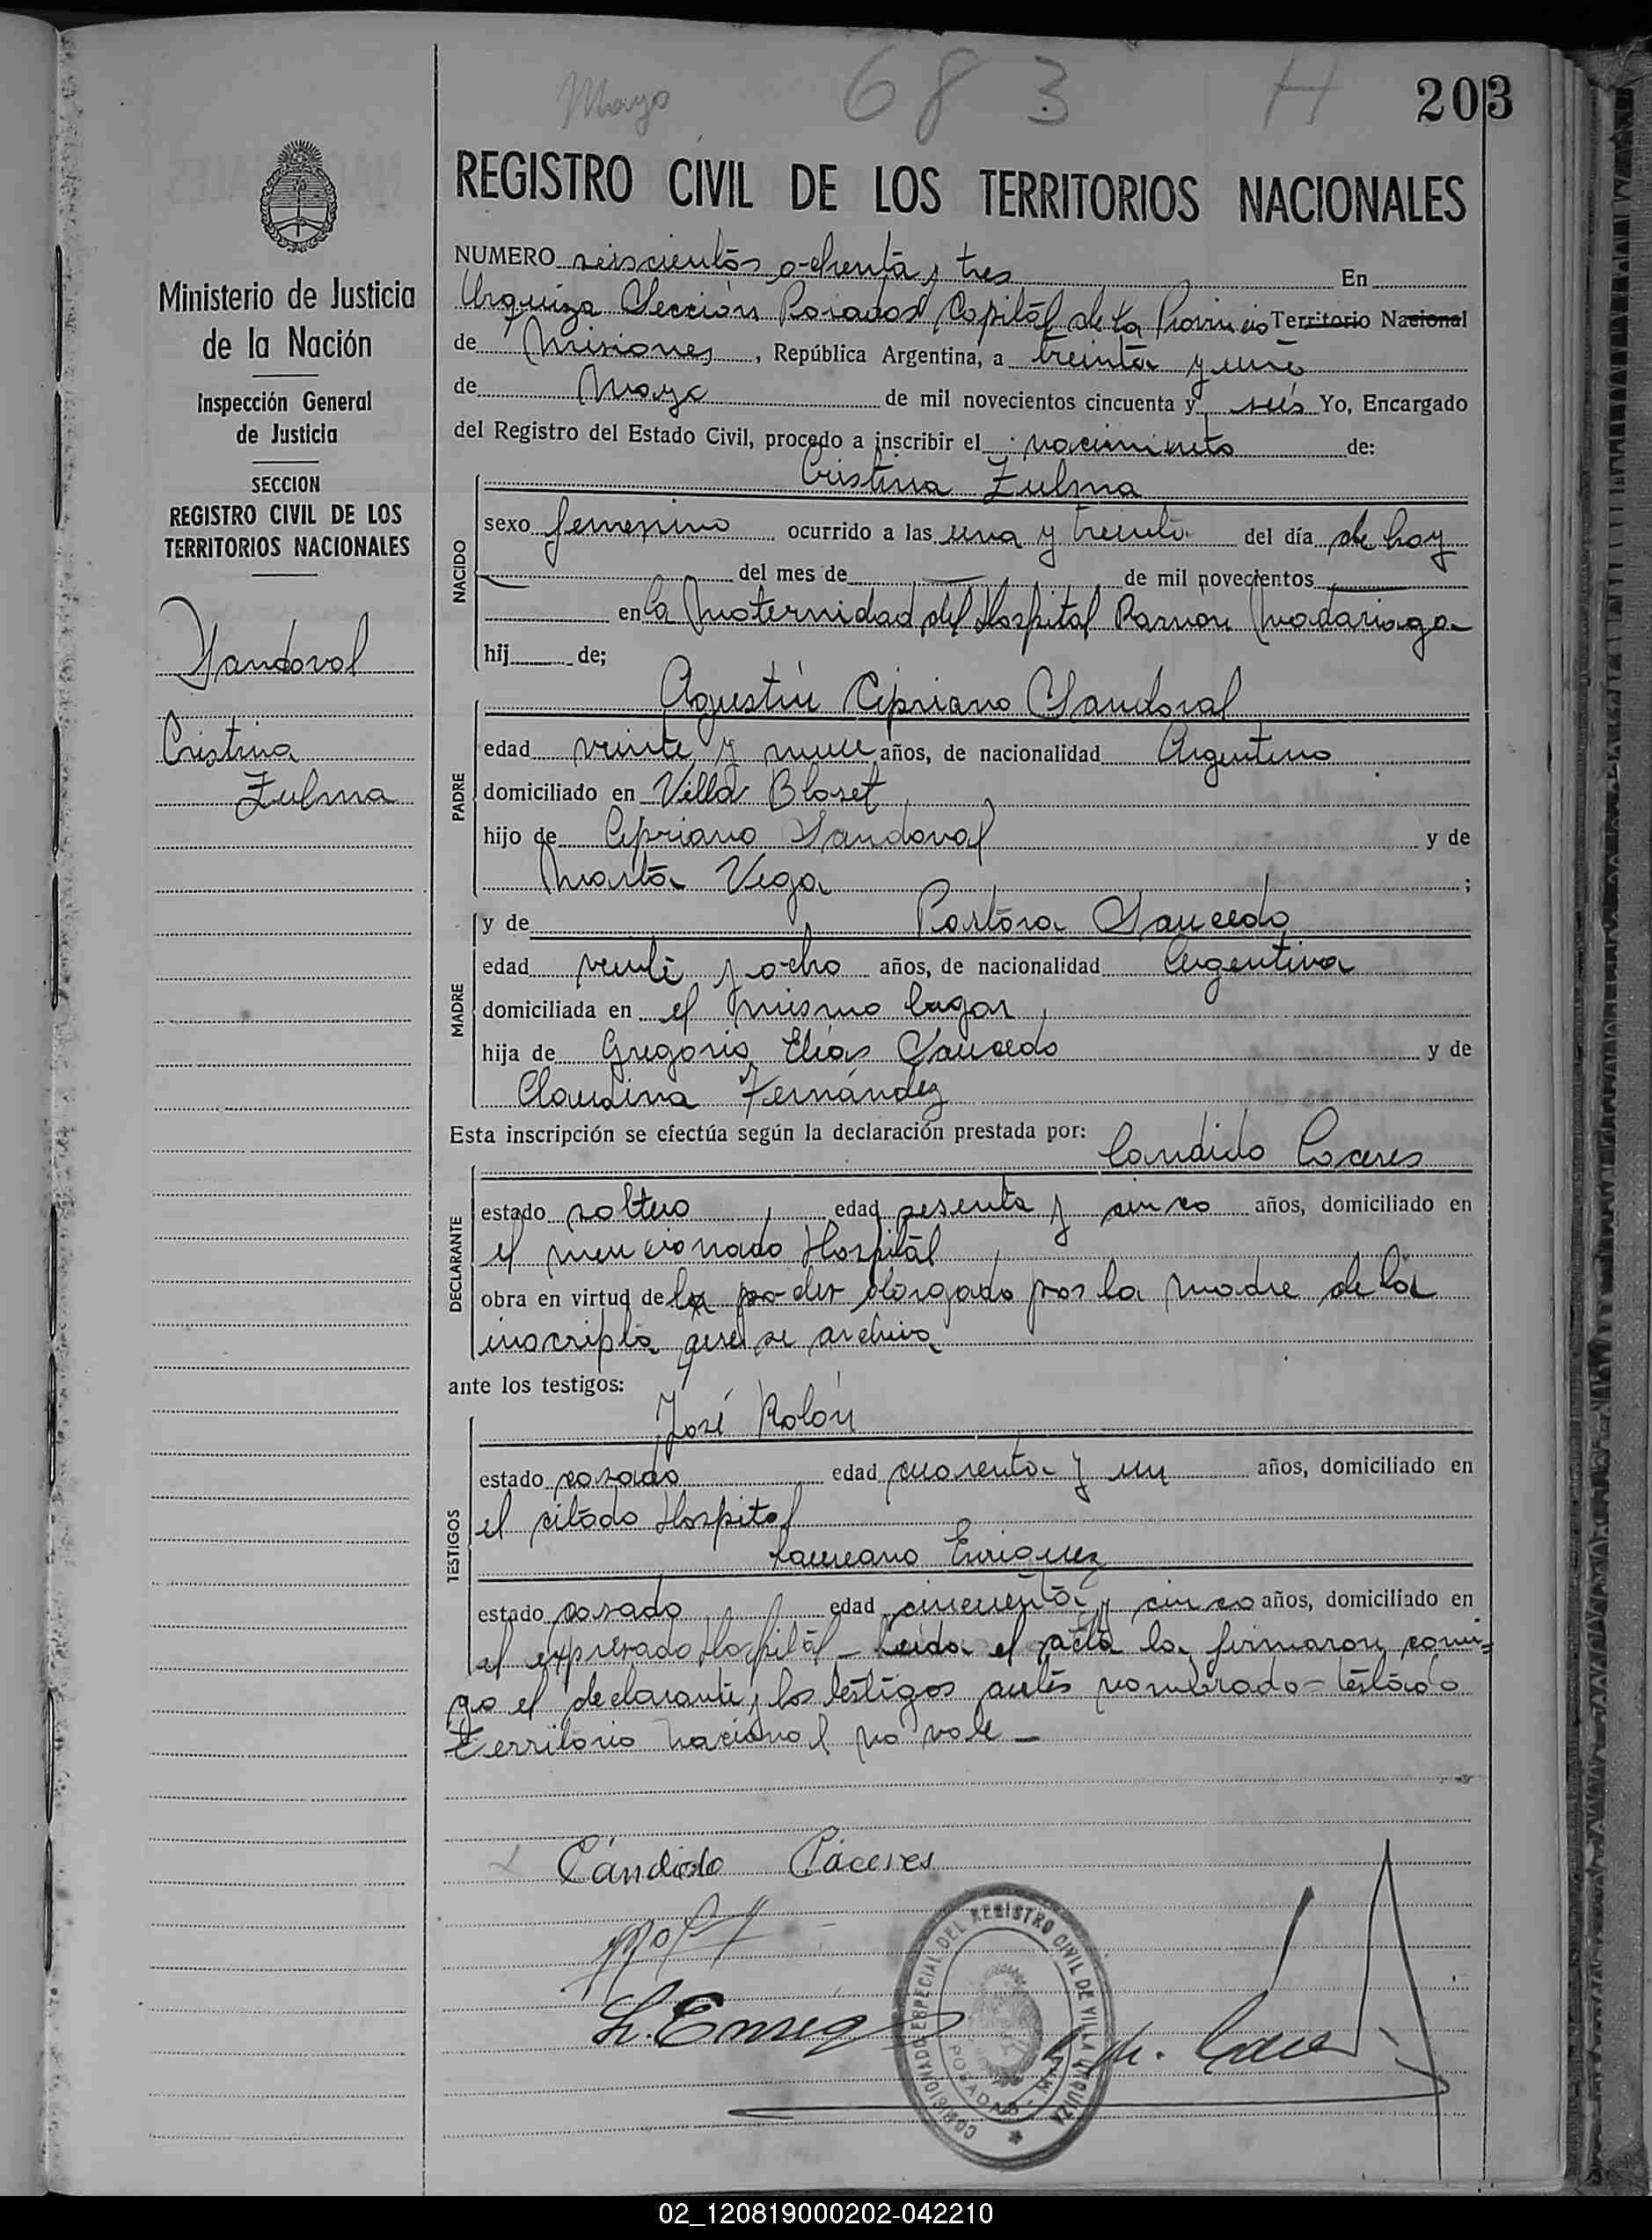 Mayo 683 H 203
REGISTRO CIVIL DE LOS TERRITORIOS NACIONALES
Ministerio de Justicia
de la Nación
Inspección General
de Justicia
SECCION
REGISTRO CIVIL DE LOS
TERRITORIOS NACIONALES
Sandoval
Cristina
Zulma
NUMERO seiscientos ochenta y tres En
Urquiza Sección Posadas Capital de la Provincia Territorio Nacional
de Misiones, República Argentina, a treinta y uno
de Mayo de mil novecientos cincuenta y seis Yo, Encargado
del Registro del Estado Civil, procedo a inscribir el nacimiento de:
Cristina Zulma
NACIDO
sexo femenino ocurrido a las una y treinta del día de hoy
del mes de de mil novecientos
en la Maternidad del Hospital Ramon Madariaga
hij de;
Agustín Cipriano Sandoval
PADRE
edad veinte y nueve años, de nacionalidad Argentino
domiciliado en Villa Blosset
hijo de Cipriano Sandoval y de
Marta Vega ;
MADRE
y de Pastora Saucedo
edad veinte y ocho años, de nacionalidad Argentina
domiciliada en el mismo lugar
hija de Gregorio Elías Saucedo y de
Claudina Fernández
Esta inscripción se efectúa según la declaración prestada por:
Candido Caceres
DECLARANTE
estado soltero, edad sesenta y cinco años, domiciliado en
el mencionado Hospital
obra en virtud de poder otorgado por la madre de la
inscripta que se archiva
ante los testigos:
José Rolón
TESTIGOS
estado casado edad cuarenta y un años, domiciliado en
el citado Hospital
Laureano Enriquez
estado casado edad cincuenta y cinco años, domiciliado en
el expresado Hospital - Leida el acta la firmaron conmi=
go el declarante y los testigos antes nombrado - testado
territorio nacional no vale -
Cándido Cáceres
L. Enriq
COMISIONADO ESPECIAL DEL REGISTRO CIVIL DE VILLA URQUIZA
POSADAS
02_120819000202-042210